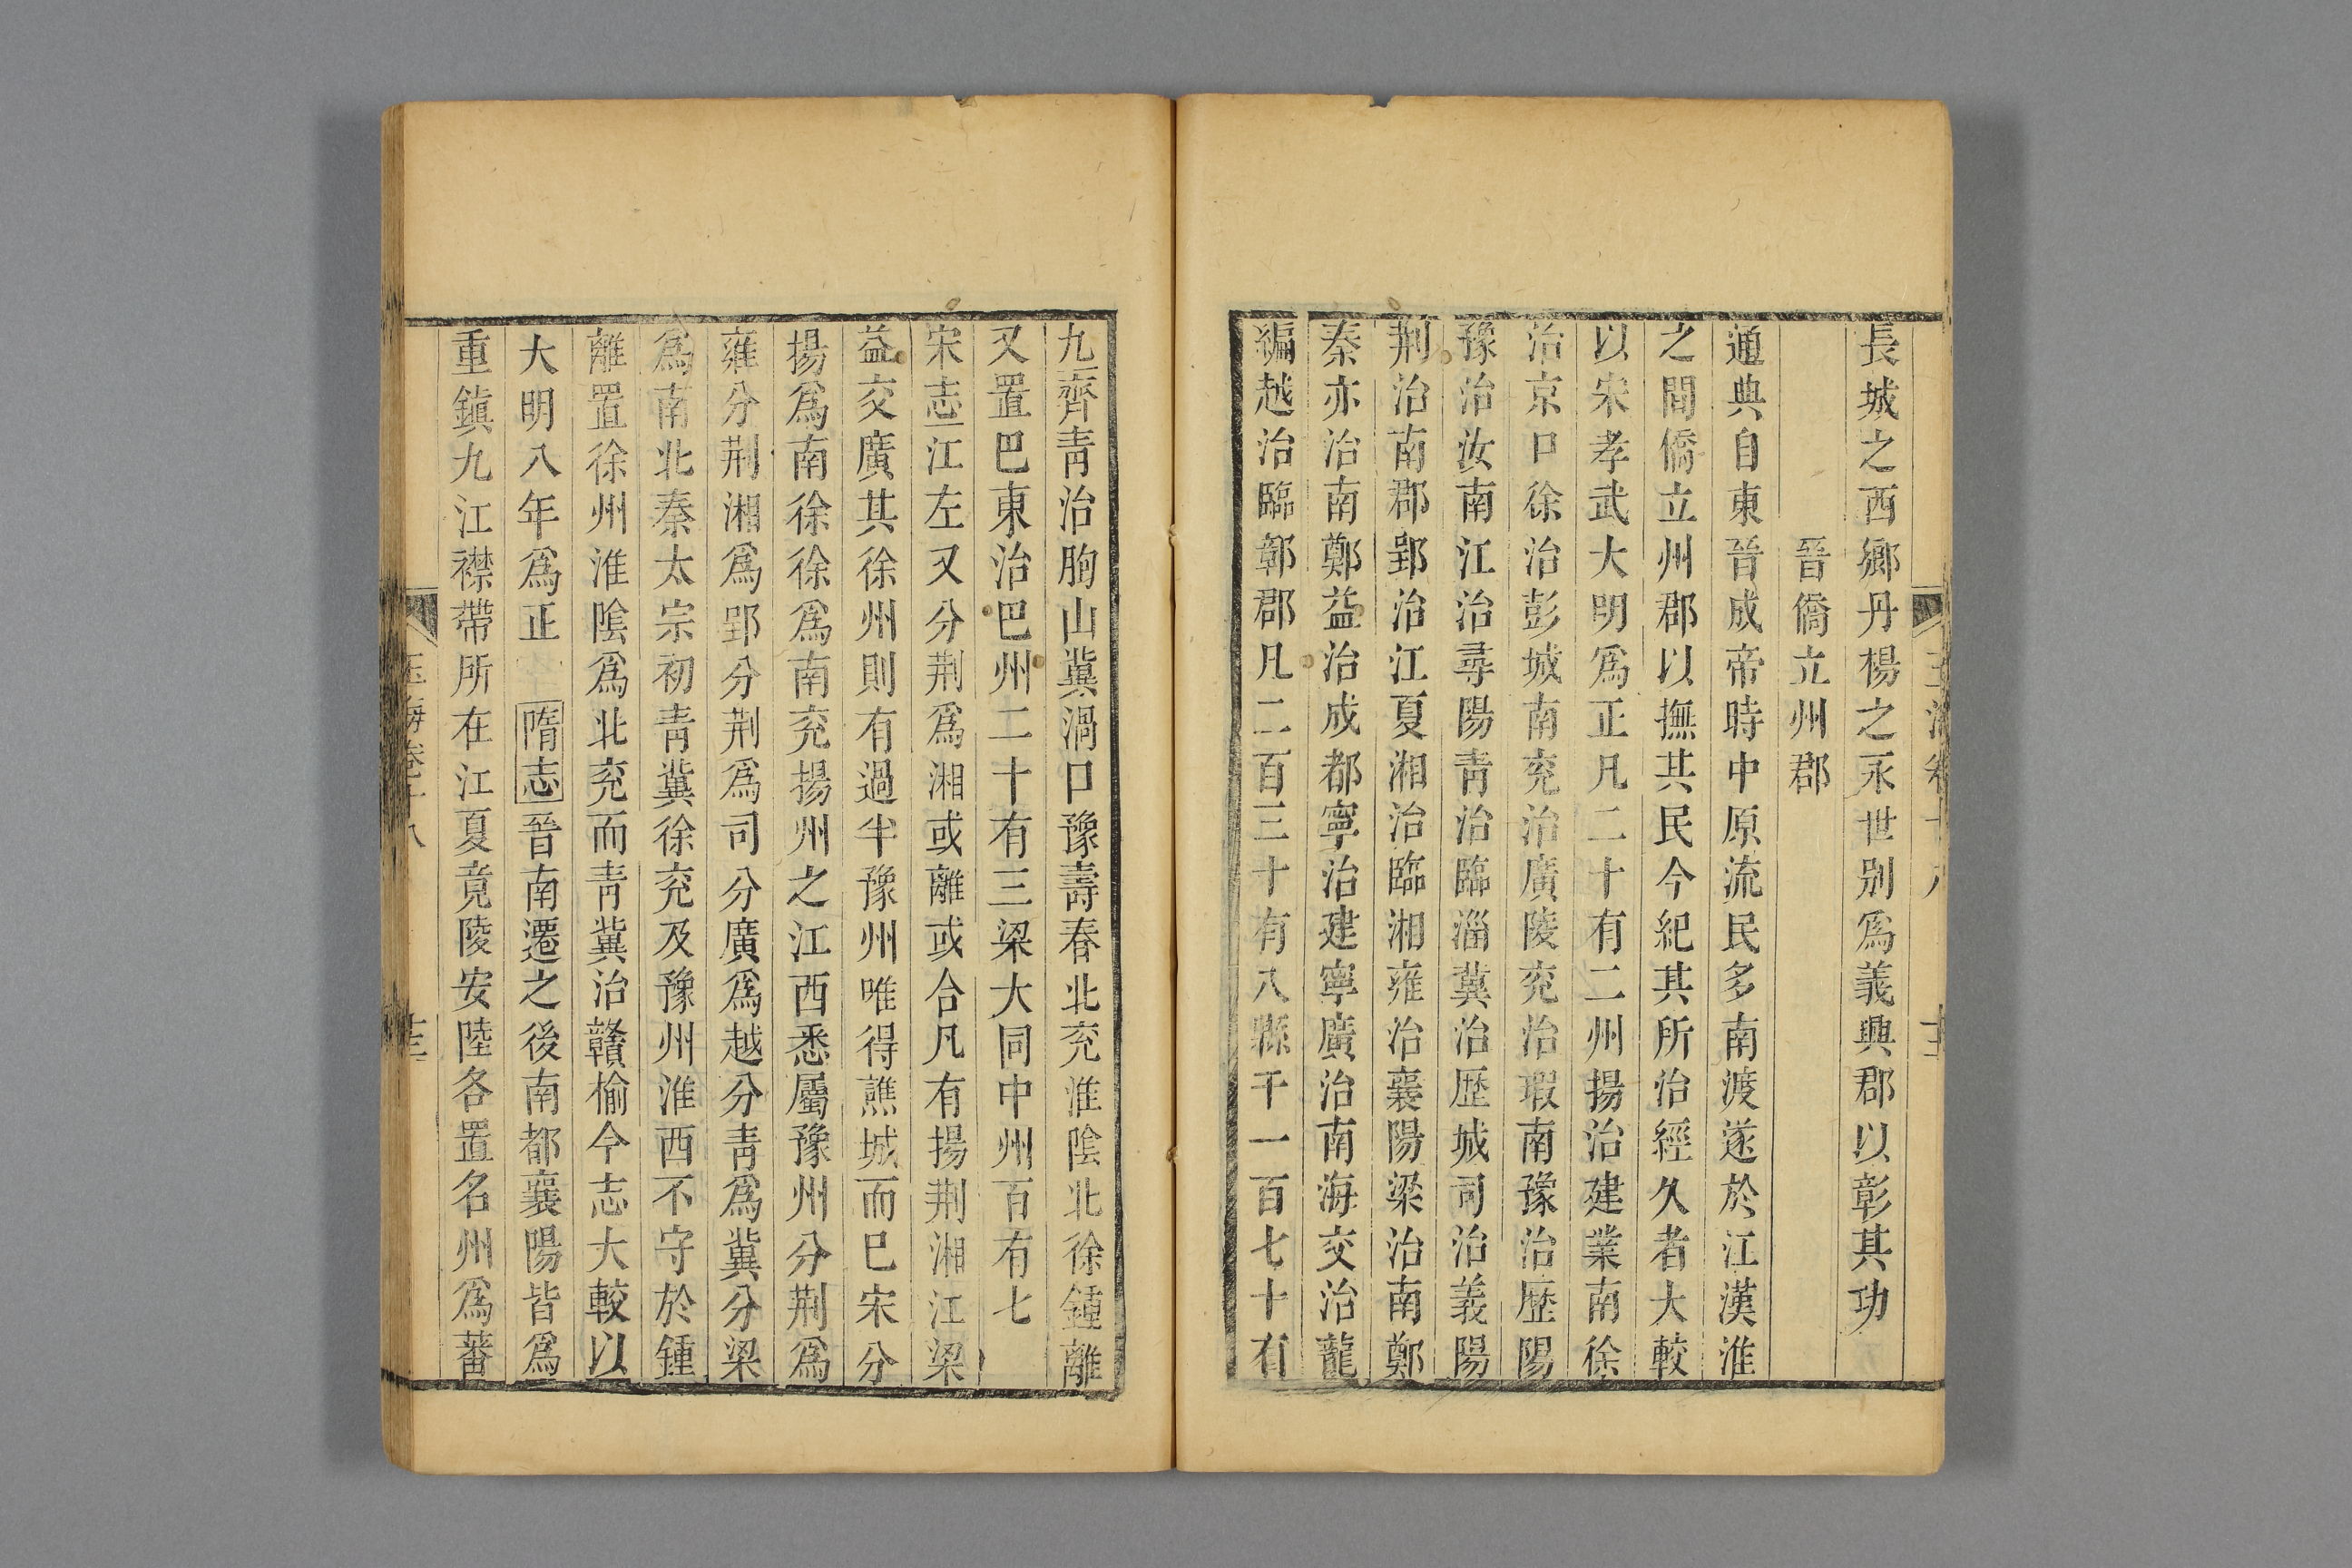 長城之西鄉丹楊之永世别爲義興郡以彰其功
晉僑立州郡
通典自東晉成帝時中原流民多南渡遂於江漢淮
之間僑立州郡以撫其民今紀其所治經久者大較
以宋孝武大明爲正凡二十有二州揚治建業南徐
治京口徐治彭城南兖治廣陵兖治瑕南豫治歷陽
豫治汝南江治尋陽青治臨淄冀治歷城司治義陽
荆治南郡郢治江夏湘治臨湘雍治襄陽梁治南鄭
秦亦治南鄭益治成都寧治建寧廣治南海交治龍
編越治臨鄣郡凡二百三十有八縣千一百七十有
九齊青治朐山冀渦口豫壽春北兖淮陰北徐鍾離
又置巴東治巴州二十有三梁大同中州百有七
宋志江左又分荆爲湘或離或合凡有揚荆湘江梁
益交廣其徐州則有過半豫州唯得譙城而巳宋分
揚爲南徐徐爲南兖揚州之江西悉屬豫州分荆爲
雍分荆湘爲郢分荆爲司分廣爲越分青爲冀分梁
爲南北秦太宗初青冀徐兖及豫州淮西不守於鍾
離置徐州淮陰爲北兖而青冀治贛榆今志大較以
大明八年爲正 隋志晉南遷之後南都襄陽皆爲
重鎮九江襟帶所在江夏竟陵安陸各置名州爲蕃
玉海卷十八
十三